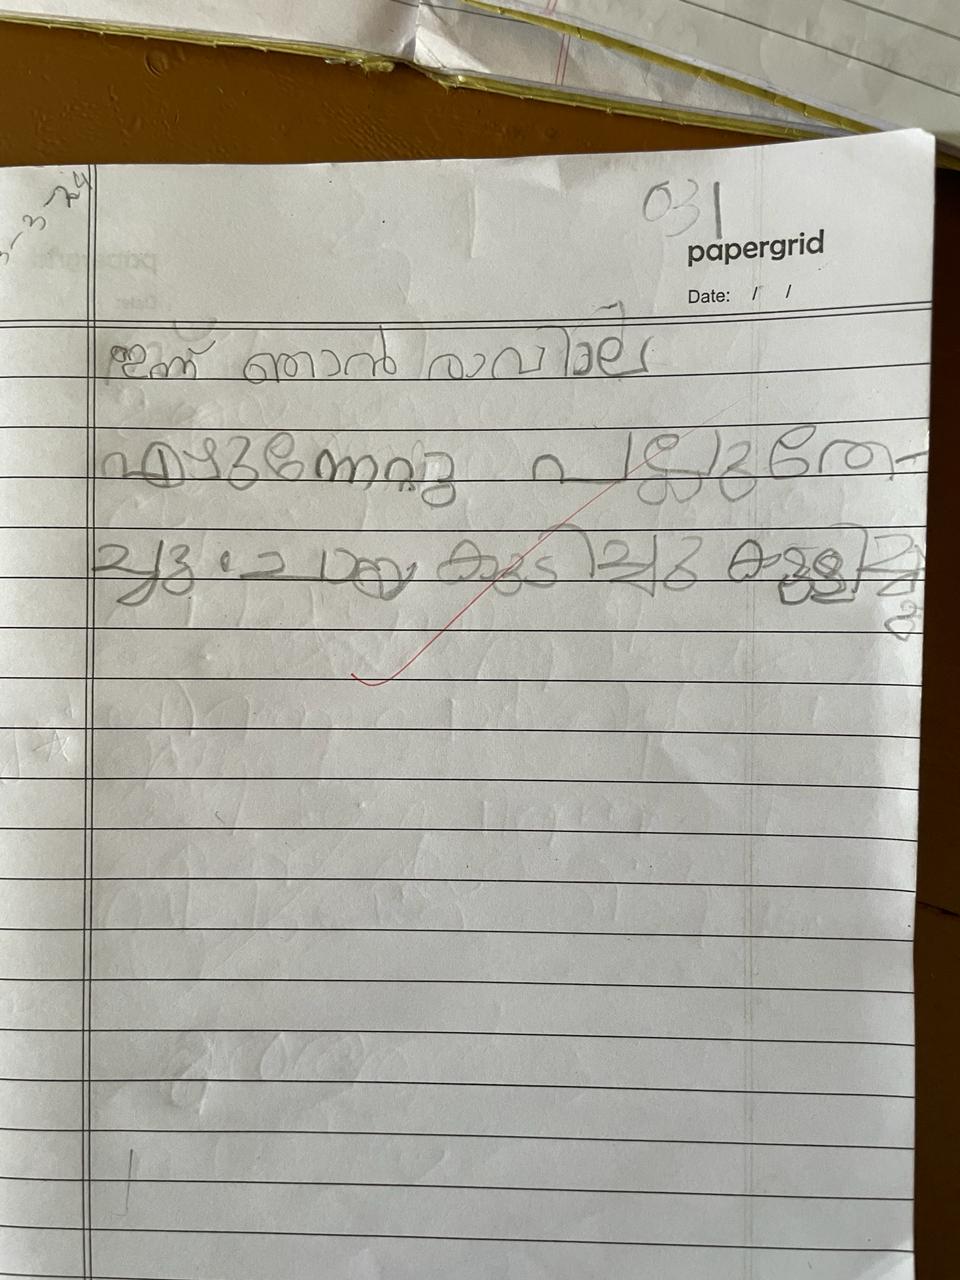 031
papergrid
Date: / /
ഇന്ന് ഞാൻ രാവിലെ
എഴുന്നേറ്റു പല്ലുതേ-
ച്ചു. ചായ കുടിച്ചു കുളിച്ചു